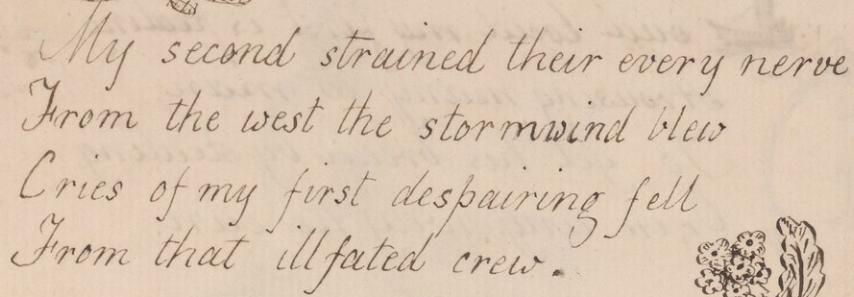 My second strained their every nerve
From the west the stormwind blew
Cries of my first despairing fell
From that illfated crew.